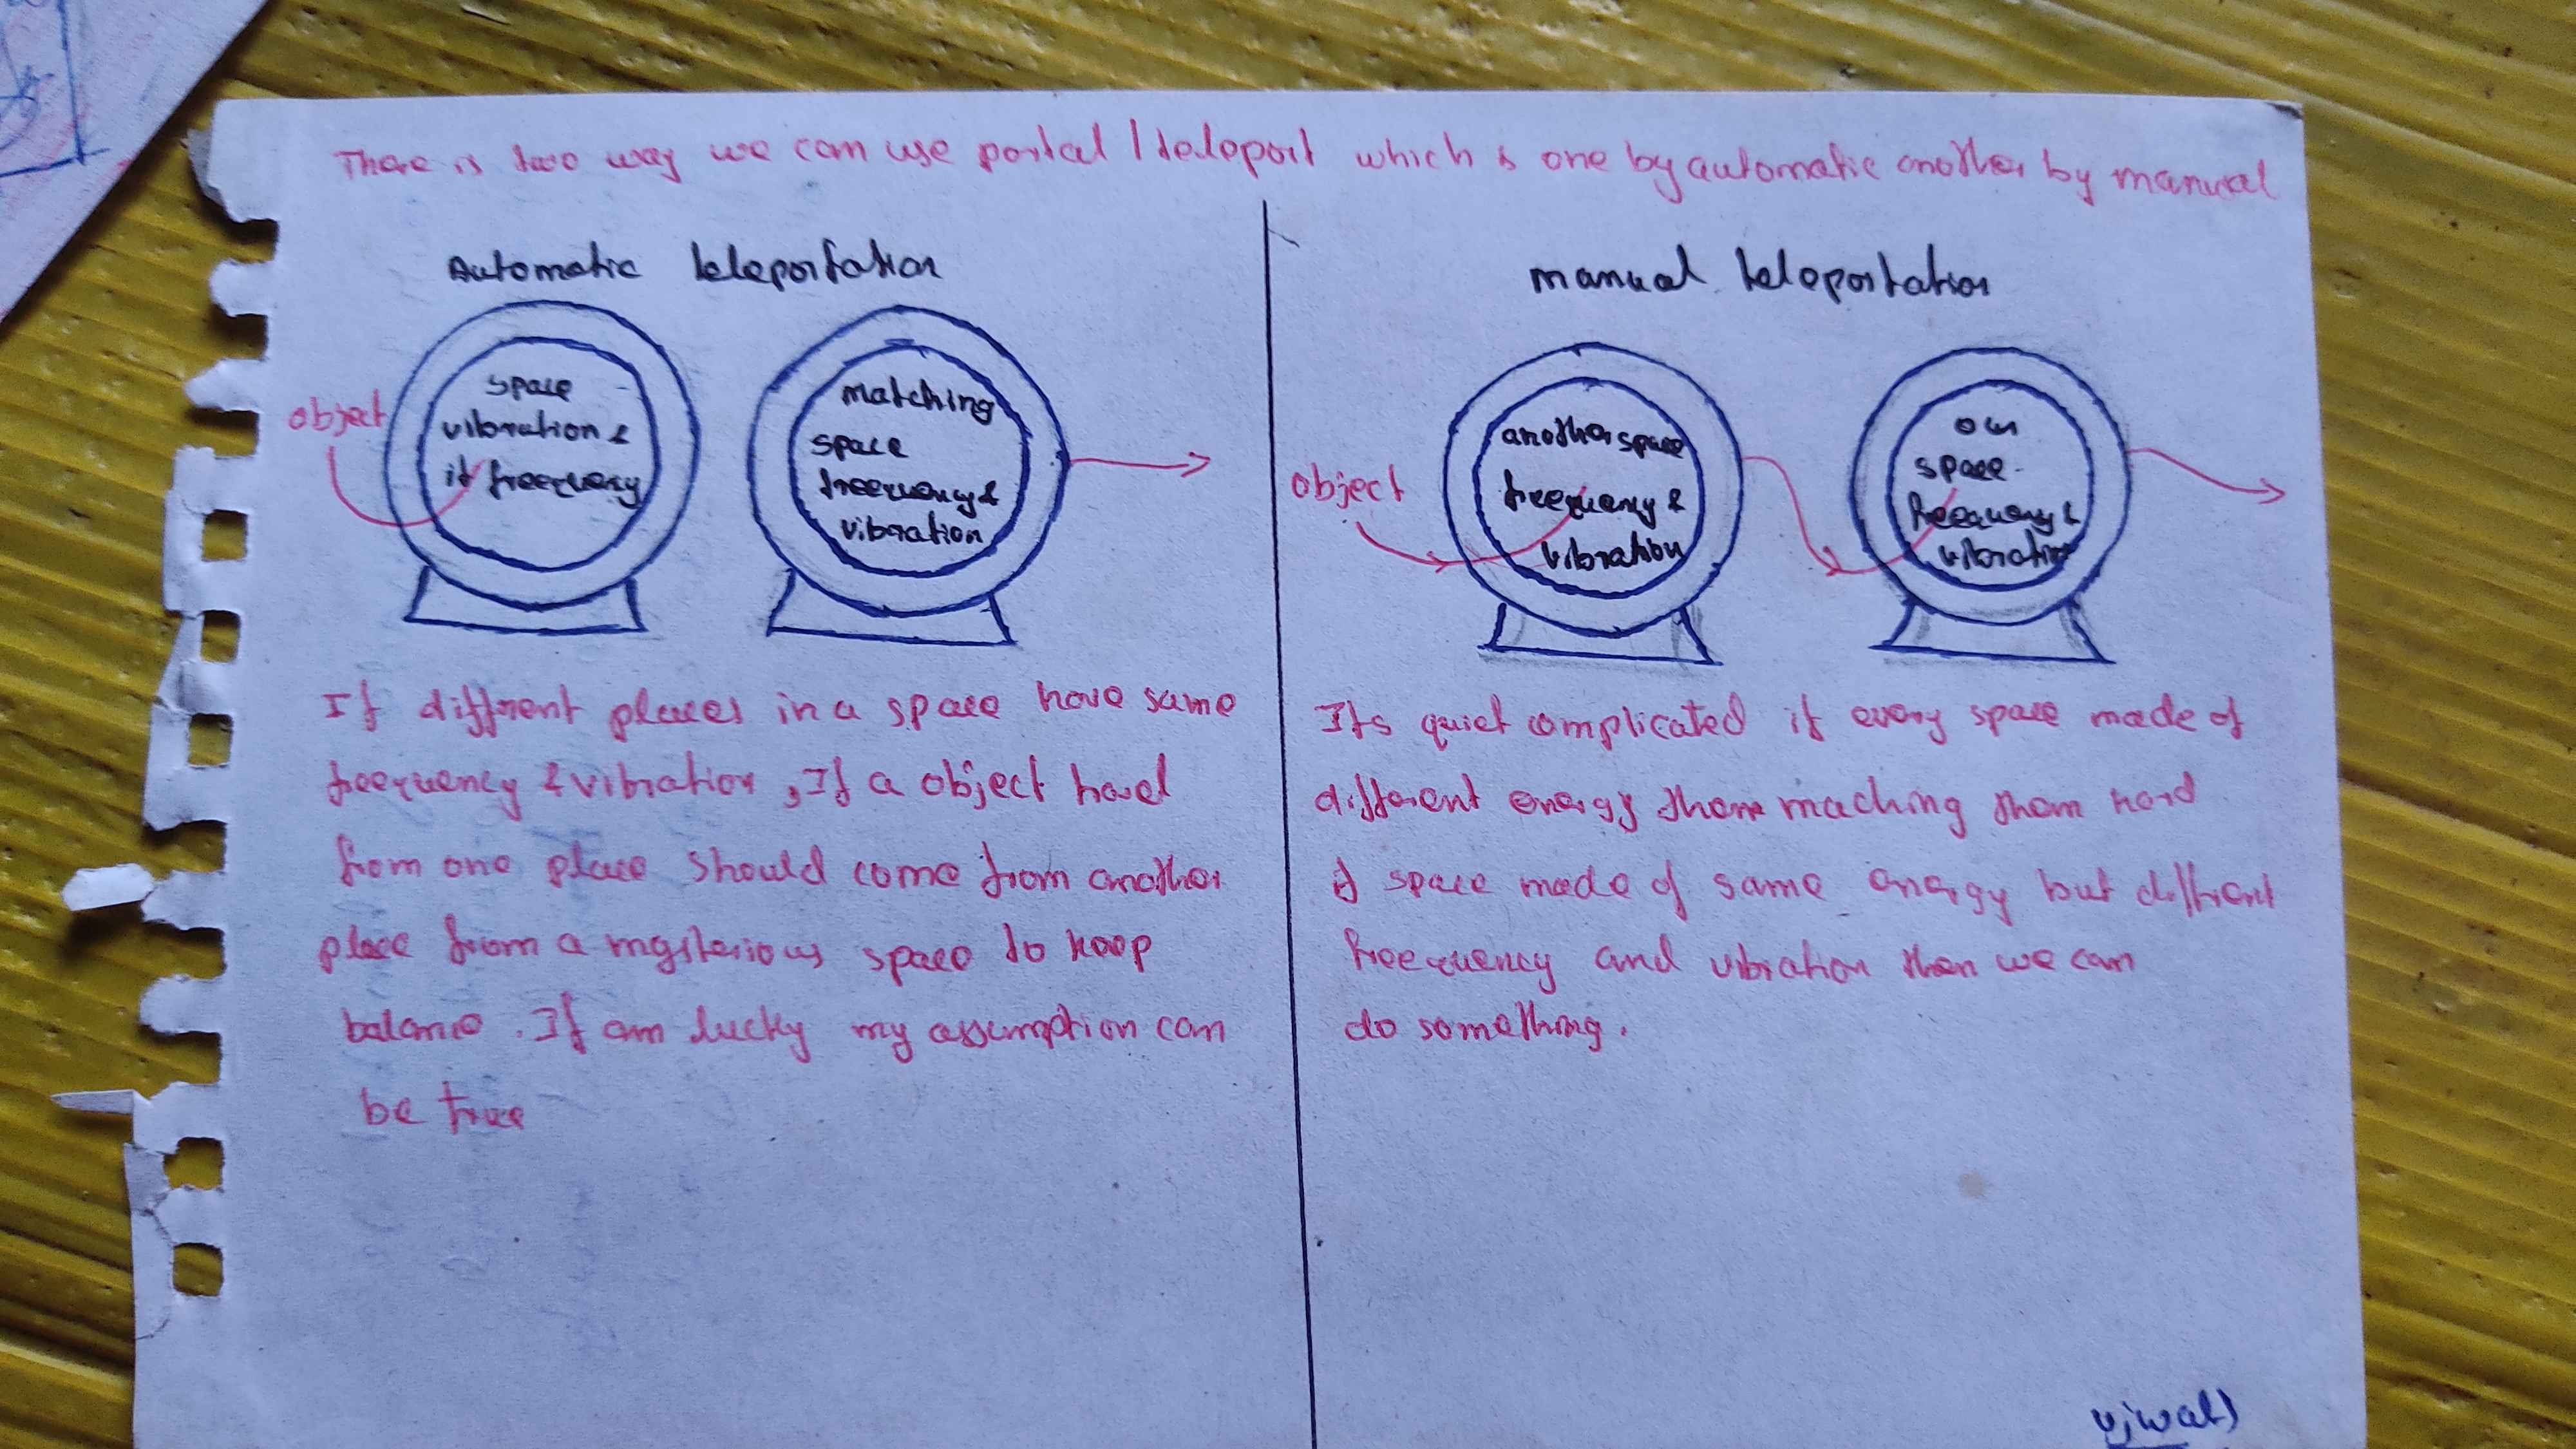 There is two way we can use portal / teleport which is one by automatic another by manual
Automatic teleportation
object
space
vibration &
it freequency
matching
space
freequency &
vibration
If different places in a space have same
freequency & vibration , If a object travel
from one place should come from another
place from a mysterious space to keep
balance . If am lucky my assumption can
be true
manual teleportation
object
another space
freequency &
vibration
our
space
freequency &
vibration
Its quiet complicated if every space made of
different energy then maching them hard
if space made of same energy but diffrent
freequency and vibration then we can
do something.